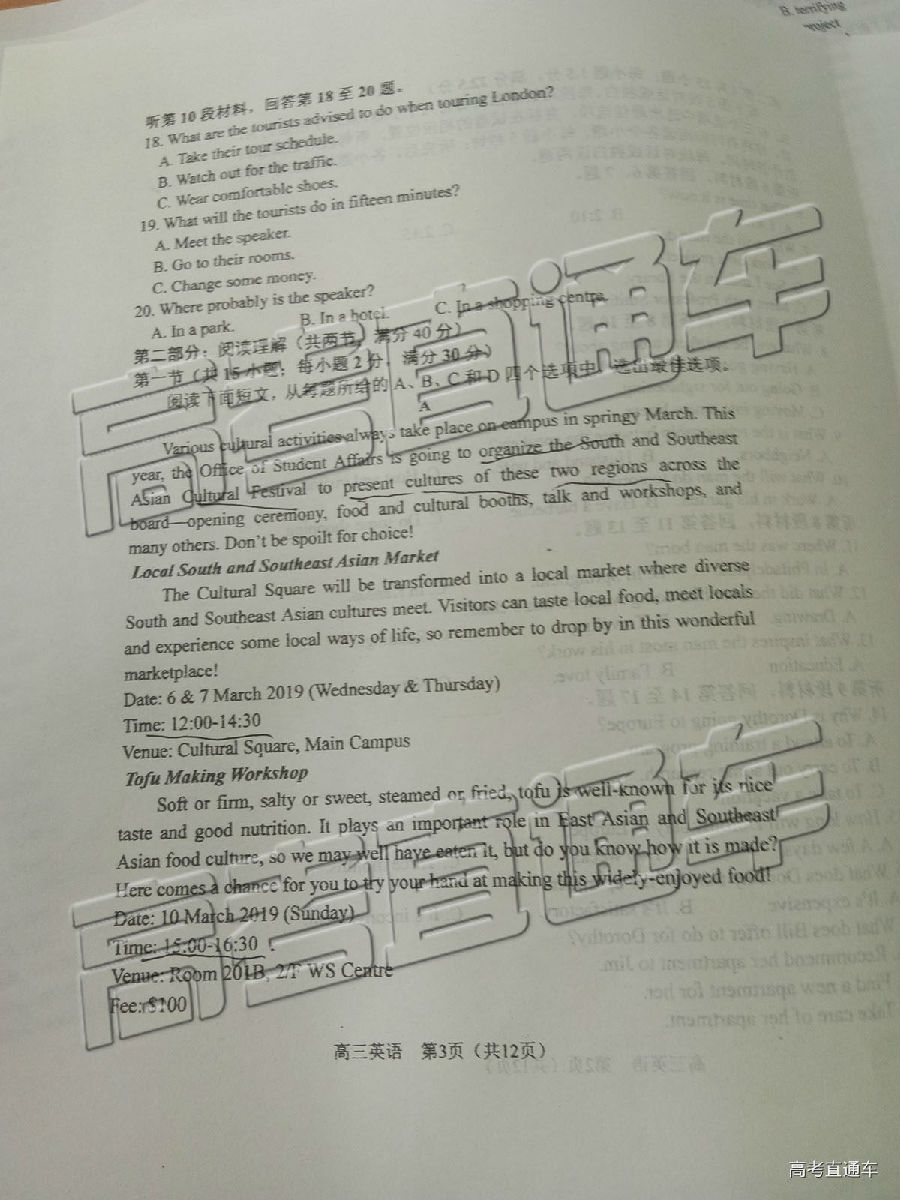 B. terrifying
project
听第10段材料，回答第18至20题。
18. What are the tourists advised to do when touring London?
A. Take their tour schedule.
B. Watch out for the traffic.
C. Wear comfortable shoes.
19. What will the tourists do in fifteen minutes?
A. Meet the speaker.
B. Go to their rooms.
C. Change some money.
20. Where probably is the speaker?
A. In a park. B. In a hotel. C. In a shopping centre.
第二部分：阅读理解（共两节，满分40分）
第一节（共15小题；每小题2分，满分30分）
阅读下面短文，从每题所给的A、B、C和D四个选项中，选出最佳选项。
A
Various cultural activities always take place on campus in springy March. This
year, the Office of Student Affairs is going to organize the South and Southeast
Asian Cultural Festival to present cultures of these two regions across the
board—opening ceremony, food and cultural booths, talk and workshops, and
many others. Don't be spoilt for choice!
Local South and Southeast Asian Market
The Cultural Square will be transformed into a local market where diverse
South and Southeast Asian cultures meet. Visitors can taste local food, meet locals
and experience some local ways of life, so remember to drop by in this wonderful
marketplace!
Date: 6 & 7 March 2019 (Wednesday & Thursday)
Time: 12:00-14:30
Venue: Cultural Square, Main Campus
Tofu Making Workshop
Soft or firm, salty or sweet, steamed or fried, tofu is well-known for its nice
taste and good nutrition. It plays an important role in East Asian and Southeast
Asian food culture, so we may well have eaten it, but do you know how it is made?
Here comes a chance for you to try your hand at making this widely-enjoyed food!
Date: 10 March 2019 (Sunday)
Time: 15:00-16:30
Venue: Room 201B, 2/F WS Centre
Fee: $100
高三英语 第3页（共12页）
高考直通车
高考直通车
高考直通车